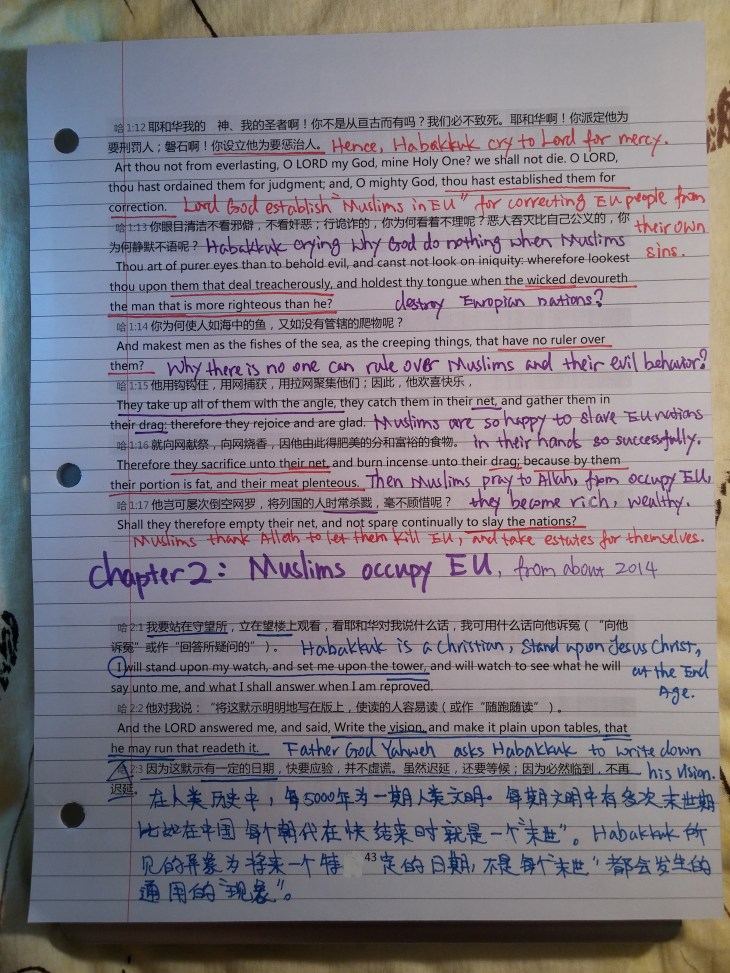 哈 1:12 耶和华我的 神、我的圣者啊！你不是从亘古而有吗？我们必不致死。耶和华啊！你派定他为
要刑罚人；磐石啊！你设立他为要惩治人。 Hence, Habakkuk cry to Lord for mercy.
Art thou not from everlasting, O LORD my God, mine Holy One? we shall not die. O LORD,
thou hast ordained them for judgment; and, O mighty God, thou hast established them for
correction. Lord God establish "Muslims in EU" for correcting EU people from
哈 1:13 你眼目清洁不看邪僻，不看奸恶；行诡诈的，你为何看着不理呢？恶人吞灭比自己公义的，你 their own
为何静默不语呢？ Habakkuk crying why God do nothing when Muslims sins.
Thou art of purer eyes than to behold evil, and canst not look on iniquity: wherefore lookest
thou upon them that deal treacherously, and holdest thy tongue when the wicked devoureth
the man that is more righteous than he? destroy Europian nations?
哈 1:14 你为何使人如海中的鱼，又如没有管辖的爬物呢？
And makest men as the fishes of the sea, as the creeping things, that have no ruler over
them? Why there is no one can rule over Muslims and their evil behavior?
哈 1:15 他用钩钩住，用网捕获，用拉网聚集他们；因此，他欢喜快乐，
They take up all of them with the angle, they catch them in their net, and gather them in
their drag: therefore they rejoice and are glad. Muslims are so happy to slave EU nations
哈 1:16 就向网献祭，向网烧香，因他由此得肥美的分和富裕的食物。 in their hands so successfully.
Therefore they sacrifice unto their net, and burn incense unto their drag; because by them
their portion is fat, and their meat plenteous. Then Muslims pray to Allah, from occupy EU,
哈 1:17 他岂可屡次倒空网罗，将列国的人时常杀戮，毫不顾惜呢？ they become rich, wealthy.
Shall they therefore empty their net, and not spare continually to slay the nations?
Muslims thank Allah to let them kill EU, and take estates for themselves.
Chapter 2: Muslims occupy EU, from about 2014
哈 2:1 我要站在守望所，立在望楼上观看，看耶和华对我说什么话，我可用什么话向他诉冤（“向他
诉冤”或作“回答所疑问的”）。 Habakkuk is a Christian, Stand upon Jesus Christ,
I will stand upon my watch, and set me upon the tower, and will watch to see what he will at the End
say unto me, and what I shall answer when I am reproved. Age.
哈 2:2 他对我说：“将这默示明明地写在版上，使读的人容易读（或作“随跑随读”）。
And the LORD answered me, and said, Write the vision, and make it plain upon tables, that
he may run that readeth it. Father God Yahweh asks Habakkuk to write down
哈 2:3 因为这默示有一定的日期，快要应验，并不虚谎。虽然迟延，还要等候；因为必然临到，不再 his vision.
迟延。 在人类历史中，每5000年为一期人类文明。每期文明中有多次末世期
比如在中国 每个朝代在快结束时就是一个“末世”。Habakkuk 所
见的异象为将来一个特 定的日期，不是每个“末世”都会发生的
43
通用的“现象”。